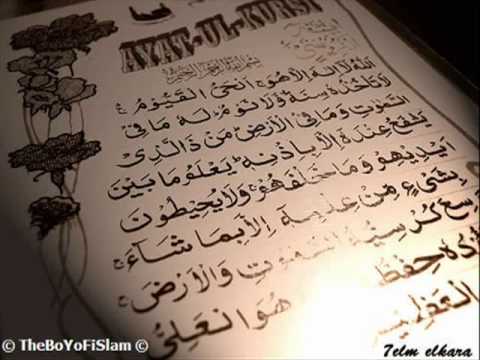 AYAT-UL-KURSI
بسم الله الرحمن الرحيم
اَللّٰهُ لَا اِلٰهَ اِلَّا هُوَ اَلْحَيُّ الْقَيُّومُ
لَا تَأْخُذُهُ سِنَةٌ وَلَا نَوْمٌ لَهُ مَا فِي
السَّمٰوٰتِ وَمَا فِي الْاَرْضِ مَنْ ذَا الَّذِي
يَشْفَعُ عِنْدَهُ اِلَّا بِاِذْنِهِ يَعْلَمُ مَا بَيْنَ
اَيْدِيهِمْ وَمَا خَلْفَهُمْ وَلَا يُحِيطُونَ
بِشَيْءٍ مِنْ عِلْمِهِ اِلَّا بِمَا شَاءَ
سِعَ كُرْسِيُّهُ السَّمٰوٰتِ وَالْاَرْضَ
هُوَ الْعَلِيُّ
الْعَظِيمُ
© TheBoYoFiSlam ©
7elm elkara